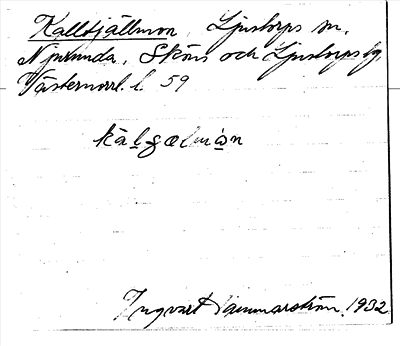 Kallsjällmon, Ljustorps sn,
Njurunda, Sköns och Ljustorps tg,
Västernorrl. l. 59
Ingvart Hammarström. 1932